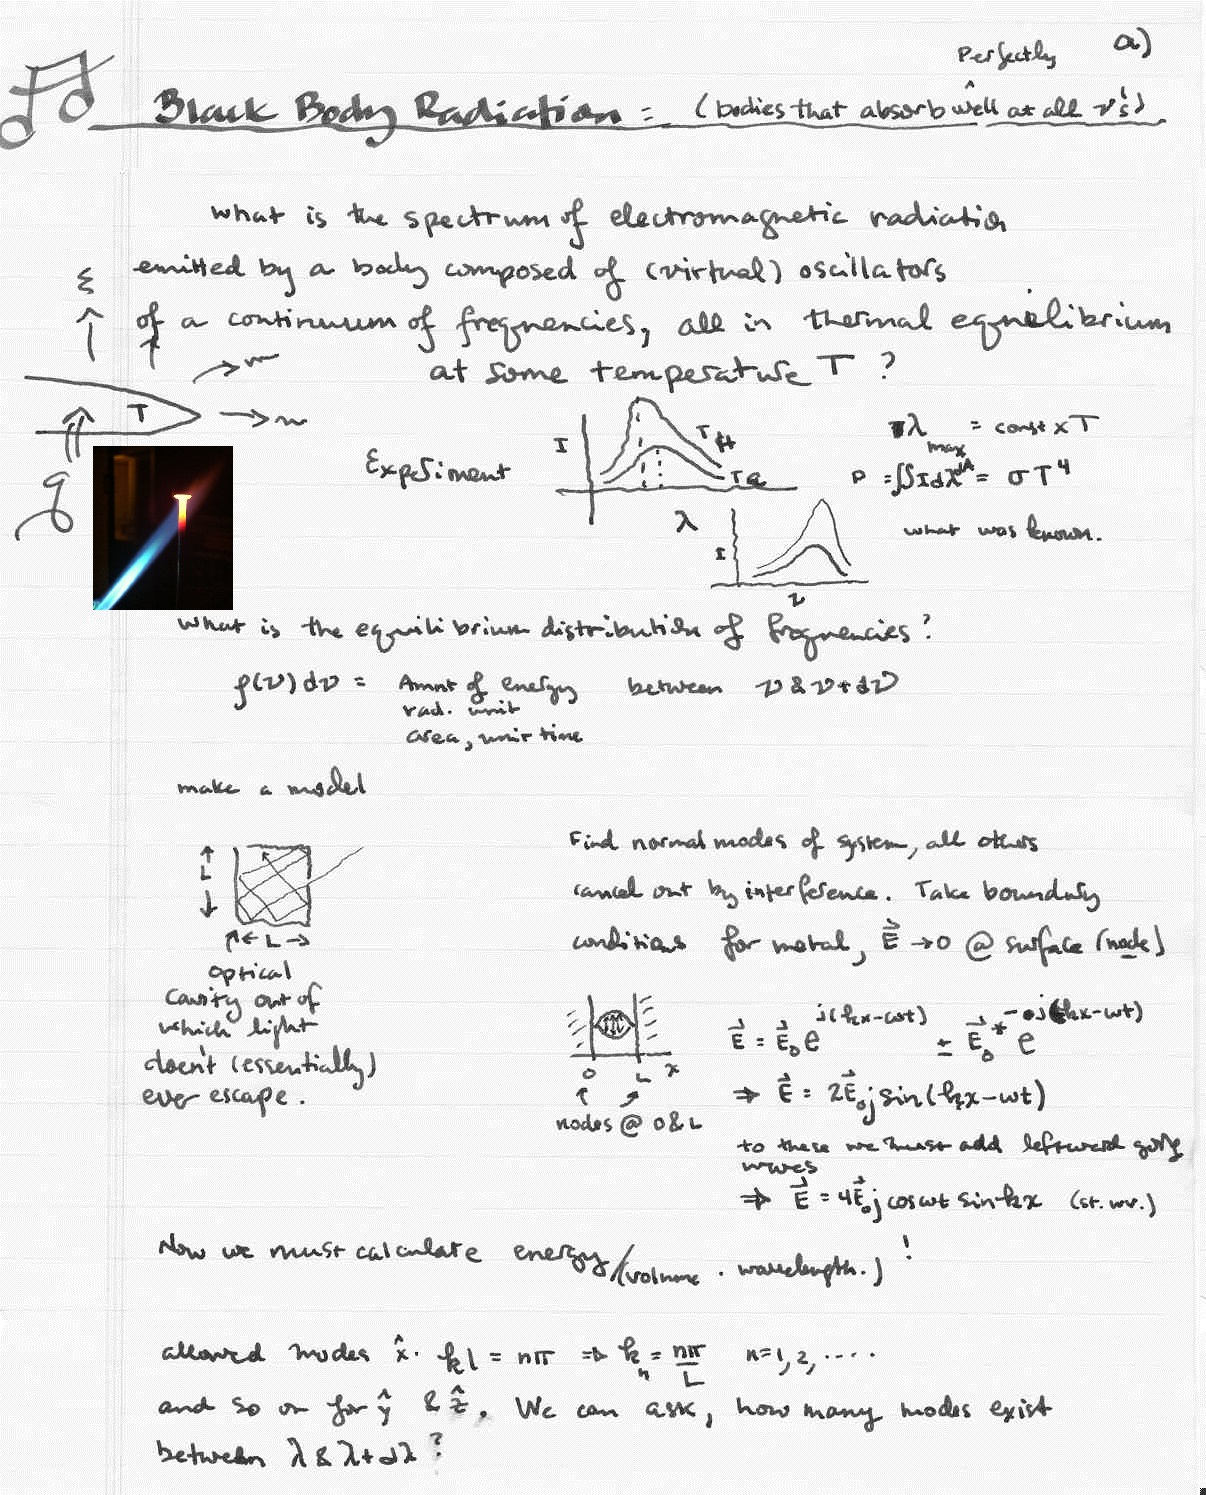 a)
Perfectly
Black Body Radiation = (bodies that absorb ^ well at all ν's)
What is the spectrum of electromagnetic radiation
emitted by a body composed of (virtual) oscillators
of a continuum of frequencies, all in thermal equilibrium
at some temperature T ?
ξ
T
q
Experiment
I
T
T
λ
I
ν
λmax = const x T
P = ∫∫I dλ dA = σT⁴
what was known.
What is the equilibrium distribution of frequencies?
ρ(ν)dν = Amnt of energy between ν & ν+dν
rad. unit
area, unit time
make a model
L
← L →
optical
Cavity out of
which light
doesn't (essentially)
ever escape.
Find normal modes of system, all others
cancel out by interference. Take boundary
conditions for metal, E⃗ → 0 @ surface (node)
0 L x
nodes @ 0 & L
E⃗ = E⃗₀ e^j(kx-ωt) ± E⃗₀* e^-j(kx-ωt)
⇒ E⃗ = 2E⃗₀j sin(kx-ωt)
to these we must add leftward going
waves
⇒ E⃗ = 4E⃗₀j cosωt sin kx (st. wv.)
Now we must calculate energy/(volume · wavelength.) !
allowed modes x̂· kl = nπ ⇒ kₙ = nπ/L n=1,2,....
and so on for ŷ & ẑ. We can ask, how many modes exist
between λ & λ+dλ ?